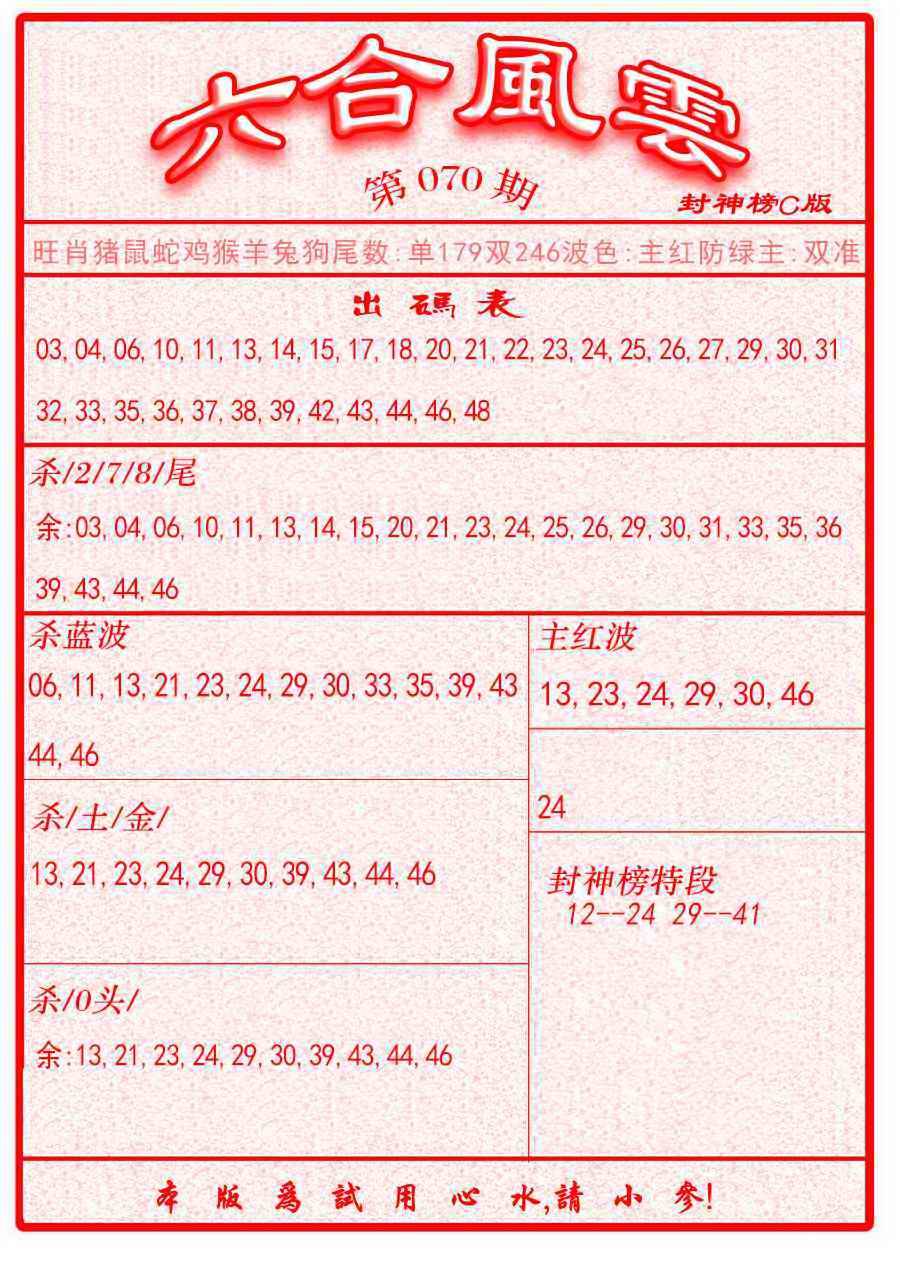 六合風雲
第070期
封神榜C版
旺肖猪鼠蛇鸡猴羊兔狗尾数:单179双246波色:主红防绿主:双准
出碼表
03,04,06,10,11,13,14,15,17,18,20,21,22,23,24,25,26,27,29,30,31
32,33,35,36,37,38,39,42,43,44,46,48
杀/2/7/8/尾
余:03,04,06,10,11,13,14,15,20,21,23,24,25,26,29,30,31,33,35,36
39,43,44,46
杀蓝波
06,11,13,21,23,24,29,30,33,35,39,43
44,46
主红波
13,23,24,29,30,46
24
杀/土/金/
13,21,23,24,29,30,39,43,44,46
封神榜特段
12--24 29--41
杀/0头/
余:13,21,23,24,29,30,39,43,44,46
本版爲試用心水,請小參!